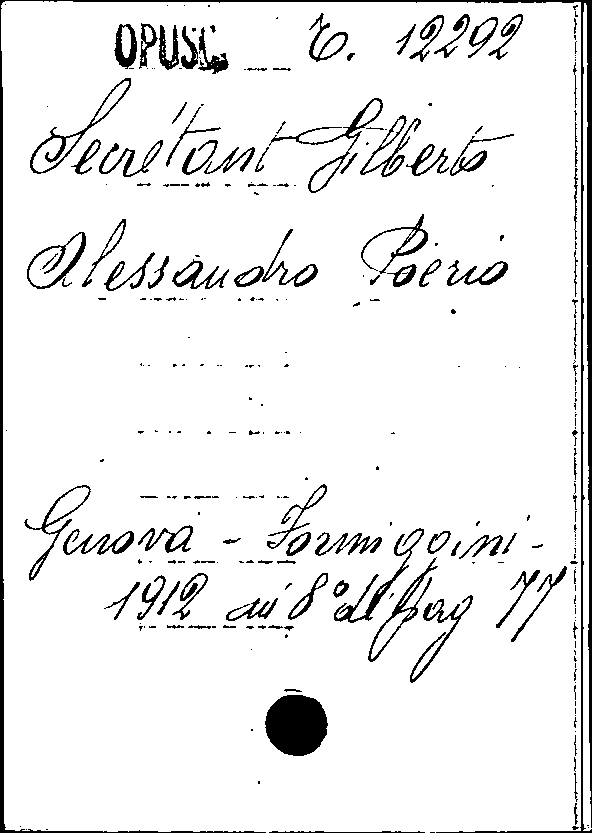 OPUSC. C. 12292
Secrétant Gilberto
Alessandro Poerio
Genova - Formiggini -
1912 in 8° di pag 77